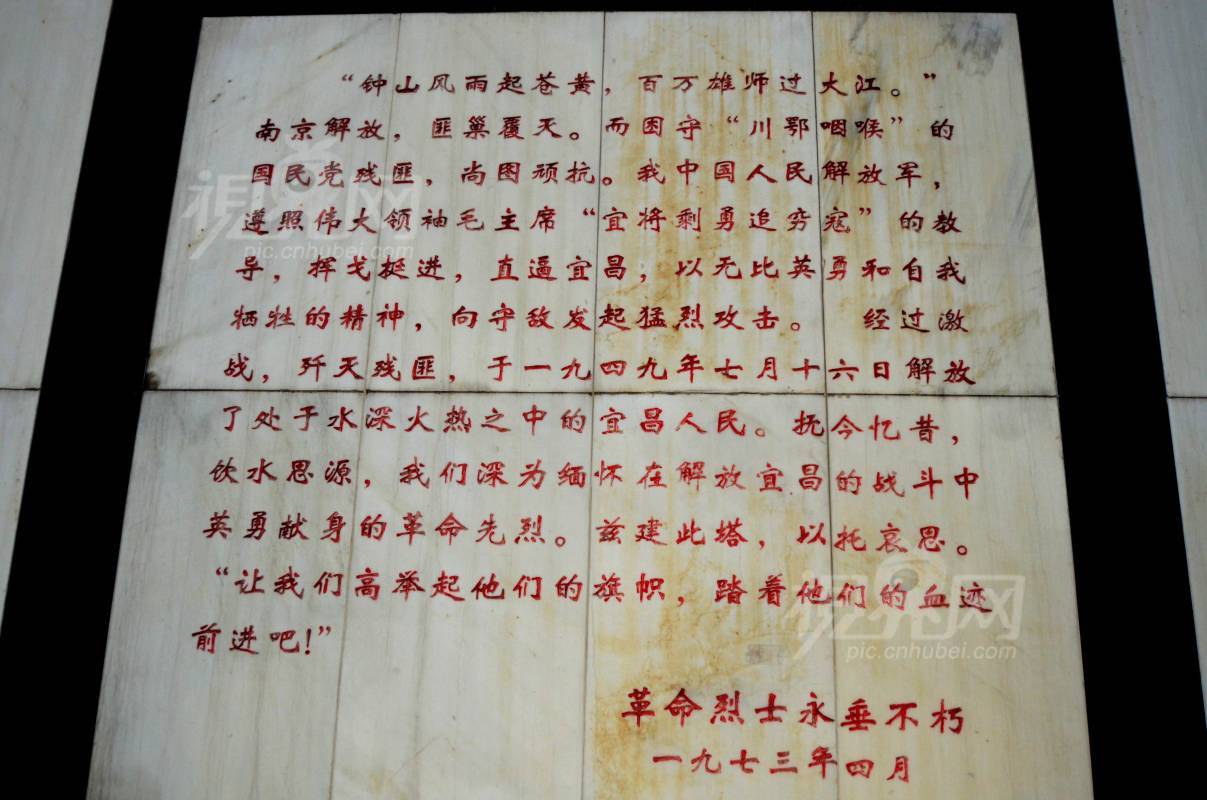 “钟山风雨起苍黄，百万雄师过大江。”
南京解放，匪巢覆灭。而困守“川鄂咽喉”的
国民党残匪，尚图顽抗。我中国人民解放军，
遵照伟大领袖毛主席“宜将剩勇追穷寇”的教
导，挥戈挺进，直逼宜昌；以无比英勇和自我
牺牲的精神，向守敌发起猛烈攻击。 经过激
战，歼灭残匪，于一九四九年七月十六日解放
了处于水深火热之中的宜昌人民。抚今忆昔，
饮水思源，我们深为缅怀在解放宜昌的战斗中
英勇献身的革命先烈。兹建此塔，以托哀思。
“让我们高举起他们的旗帜，踏着他们的血迹
前进吧！”
革命烈士永垂不朽
一九七三年四月
視界网
pic.cnhubei.com
視界网
pic.cnhubei.com